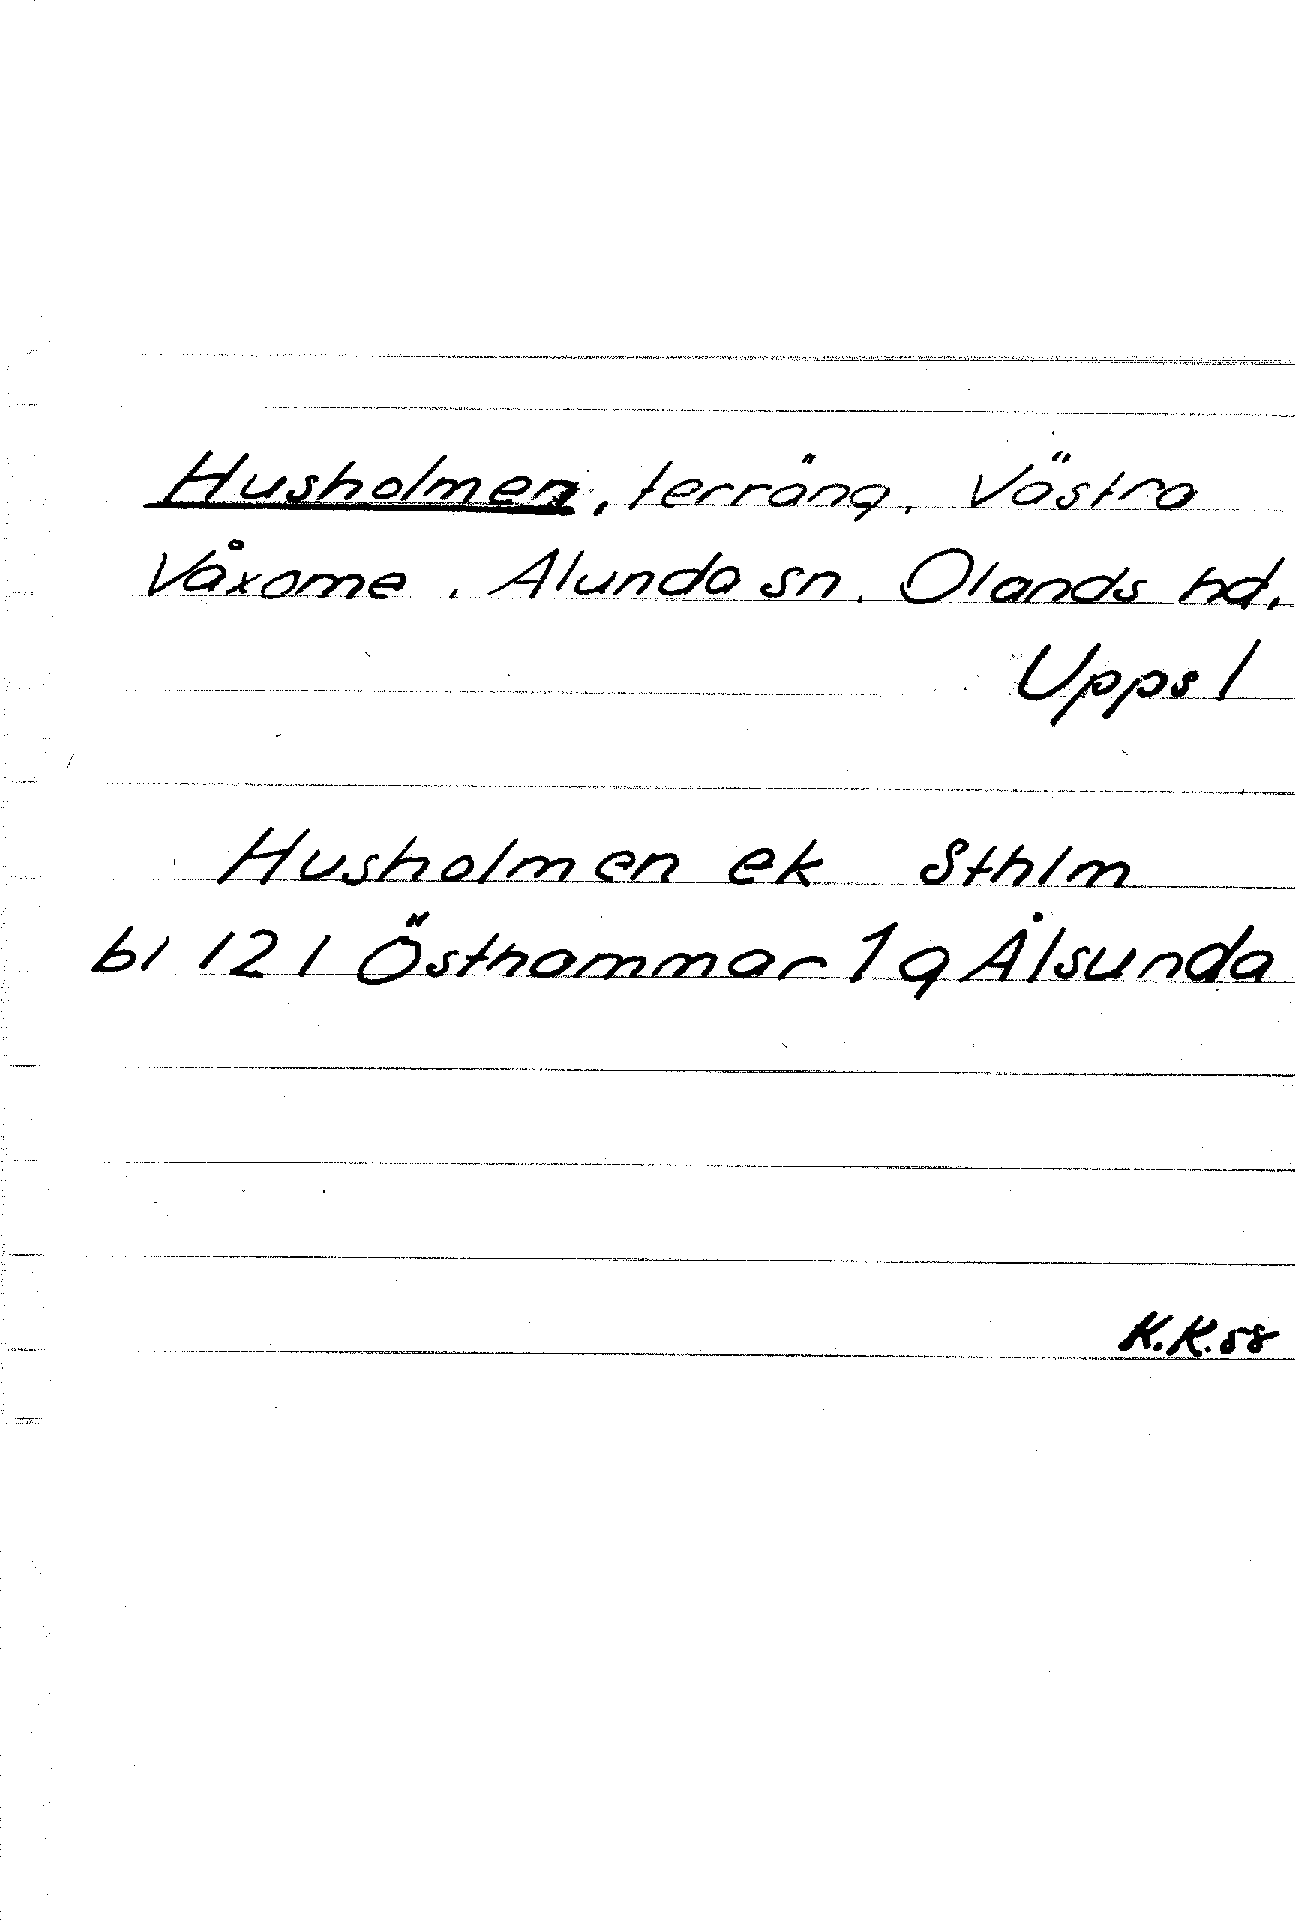 Husholmen, terräng, Västra
Våxome, Alunda sn, Olands hd,
Upps l
Husholmen ek Sthlm
bl 121 Östhammar 1 g Ålsunda
K.K. 58